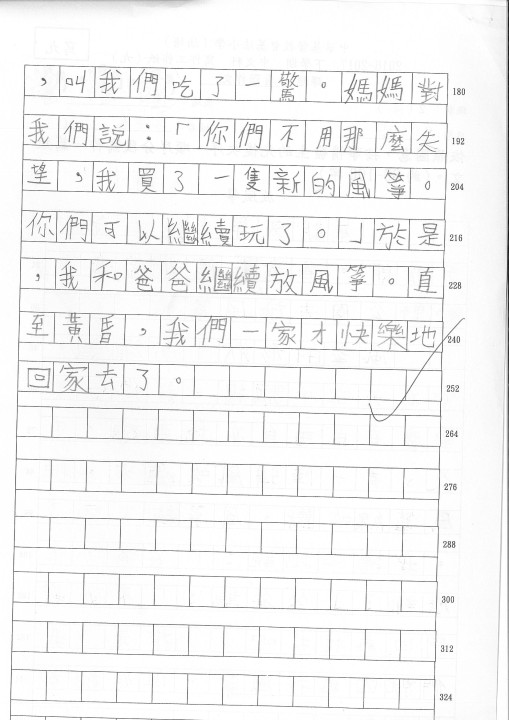 ，叫我們吃了一驚。媽媽對 180
我們說：「你們不用那麼失 192
望，我買了一隻新的風箏。 204
你們可以繼續玩了。」於是 216
，我和爸爸繼續放風箏。直 228
至黃昏，我們一家才快樂地 240
回家去了。 252
264
276
288
300
312
324